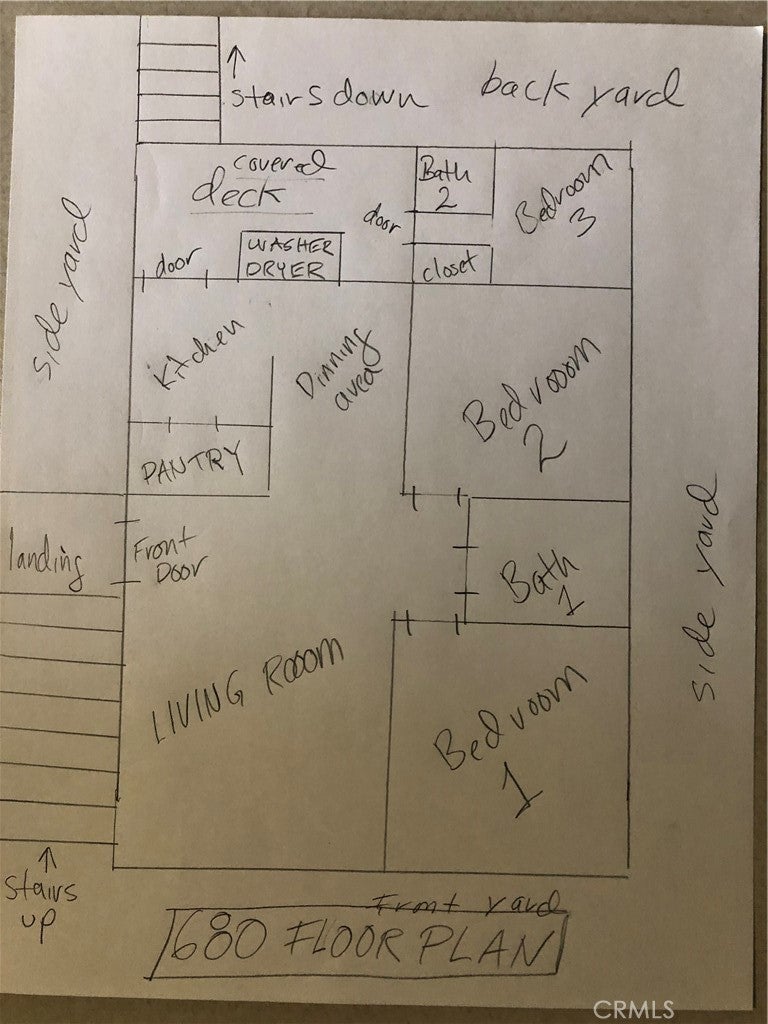 stairs down
back yard
covered
deck
Bath
2
Bedroom
3
door
side yard
door
WASHER
DRYER
closet
Kitchen
Dinning
area
Bedrooom
2
PANTRY
landing
Front
Door
Bath
1
side yard
LIVING ROOOM
Bedrooom
1
stairs
up
Front yard
680 FLOOR PLAN
CRMLS